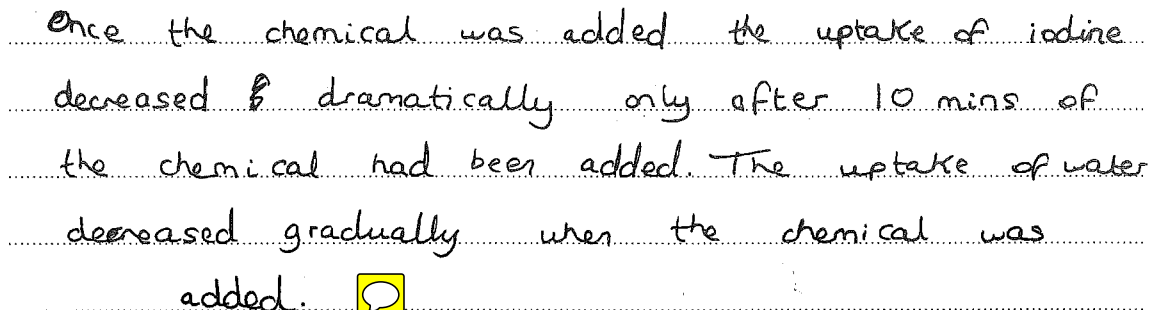 Once the chemical was added the uptake of iodine
decreased dramatically only after 10 mins of
the chemical had been added. The uptake of water
decreased gradually when the chemical was
added.